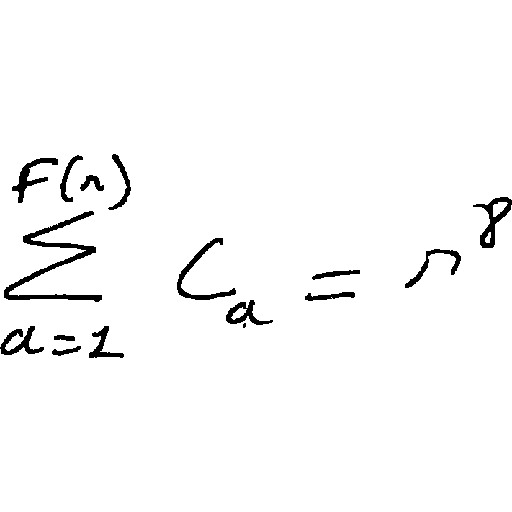 \sum_{a=1}^{F(n)} C_a = n^8